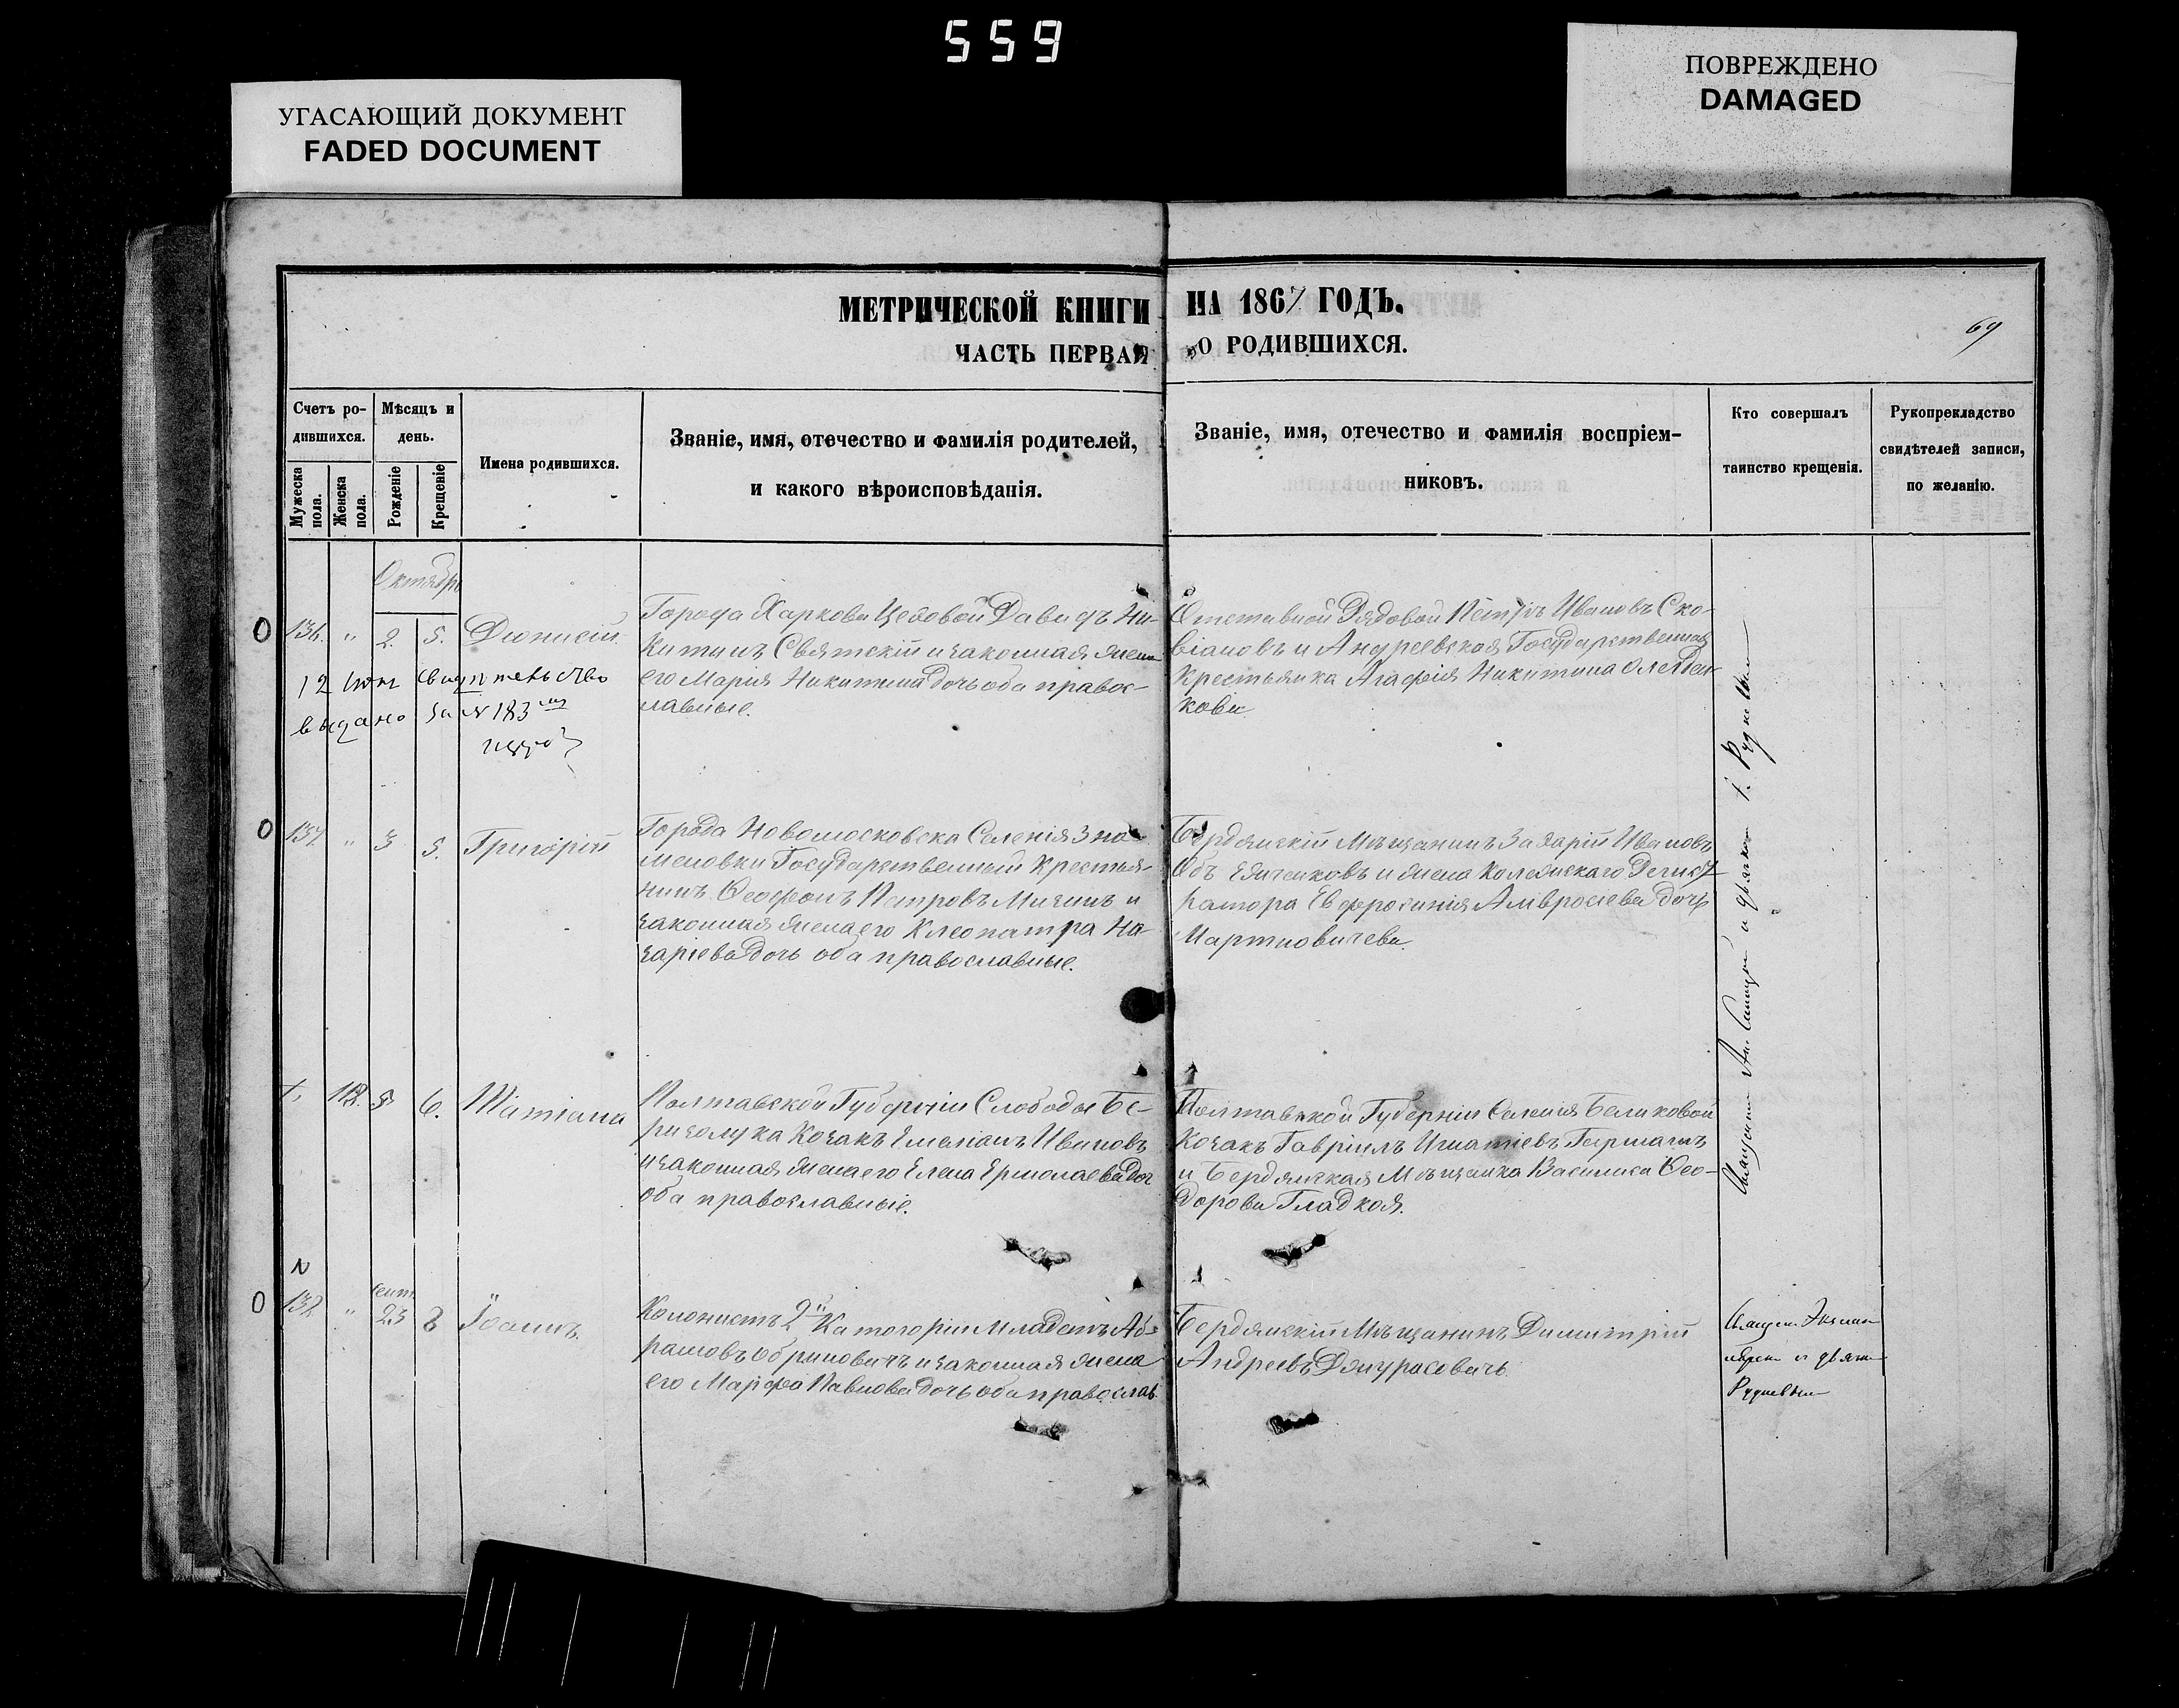 559
УГАСАЮЩИЙ ДОКУМЕНТ
FADED DOCUMENT
ПОВРЕЖДЕНО
DAMAGED
МЕТРИЧЕСКОЙ КНИГИ НА 1867 ГОДЪ.
ЧАСТЬ ПЕРВАЯ О РОДИВШИХСЯ.
69
Счетъ ро-
дившихся.
Мужеска пола.
Женска пола.
Мѣсяцъ и
день.
Рожденіе
Крещеніе
Имена родившихся.
Званіе, имя, отечество и фамилія родителей,
и какого вѣроисповѣданія.
Званіе, имя, отечество и фамилія воспріем-
никовъ.
Кто совершалъ
таинство крещенія.
Рукоприкладство
свидѣтелей записи,
по желанію.
Октябрь
136. " 2. 5. Діонисій.
Города Харкова Цеховой Давидъ Ни-
китинъ Святскій и законная жена
его Марія Никитина дочь оба правос-
лавные.
Отставной Рядовой Петръ Ивановъ Ско-
и Андреевская Государственная
Крестьянка Агафія Никитина
кова
12 свидѣтельство
выдано за № 183
137 " 3 5. Григорій
Города Новомосковска Селенія Зна-
меновки Государственный Крестья-
нинъ Феофанъ Петровъ и
законная жена его Клеопатра На-
заріева дочь оба православные.
Бердянскій Мѣщанинъ Захарій Ивановъ
и жена Коллежскаго Регист-
ратора Евфросинія Амвросіева дочь
Мартновичева.
118. 3 6. Татіана
Полтавской Губерніи Слободы Бе-
резолука Козакъ Емеліанъ Ивановъ
и законная жена его Елена Ермолаева доч
оба православные.
Полтавской Губерніи Селенія Беликовой
Козакъ Гавріилъ Игнатіевъ
и Бердянская Мѣщанка Василиса Фео-
дорова Гладкая.
и дьякон
сент
138 " 23 8 Іоаннъ.
Колонистъ 2й Категоріи Младенъ Аб-
рамовъ и законная жена
его Марфа Павлова дочь оба православ.
Бердянскій Мѣщанинъ Димитрій
Андреевъ